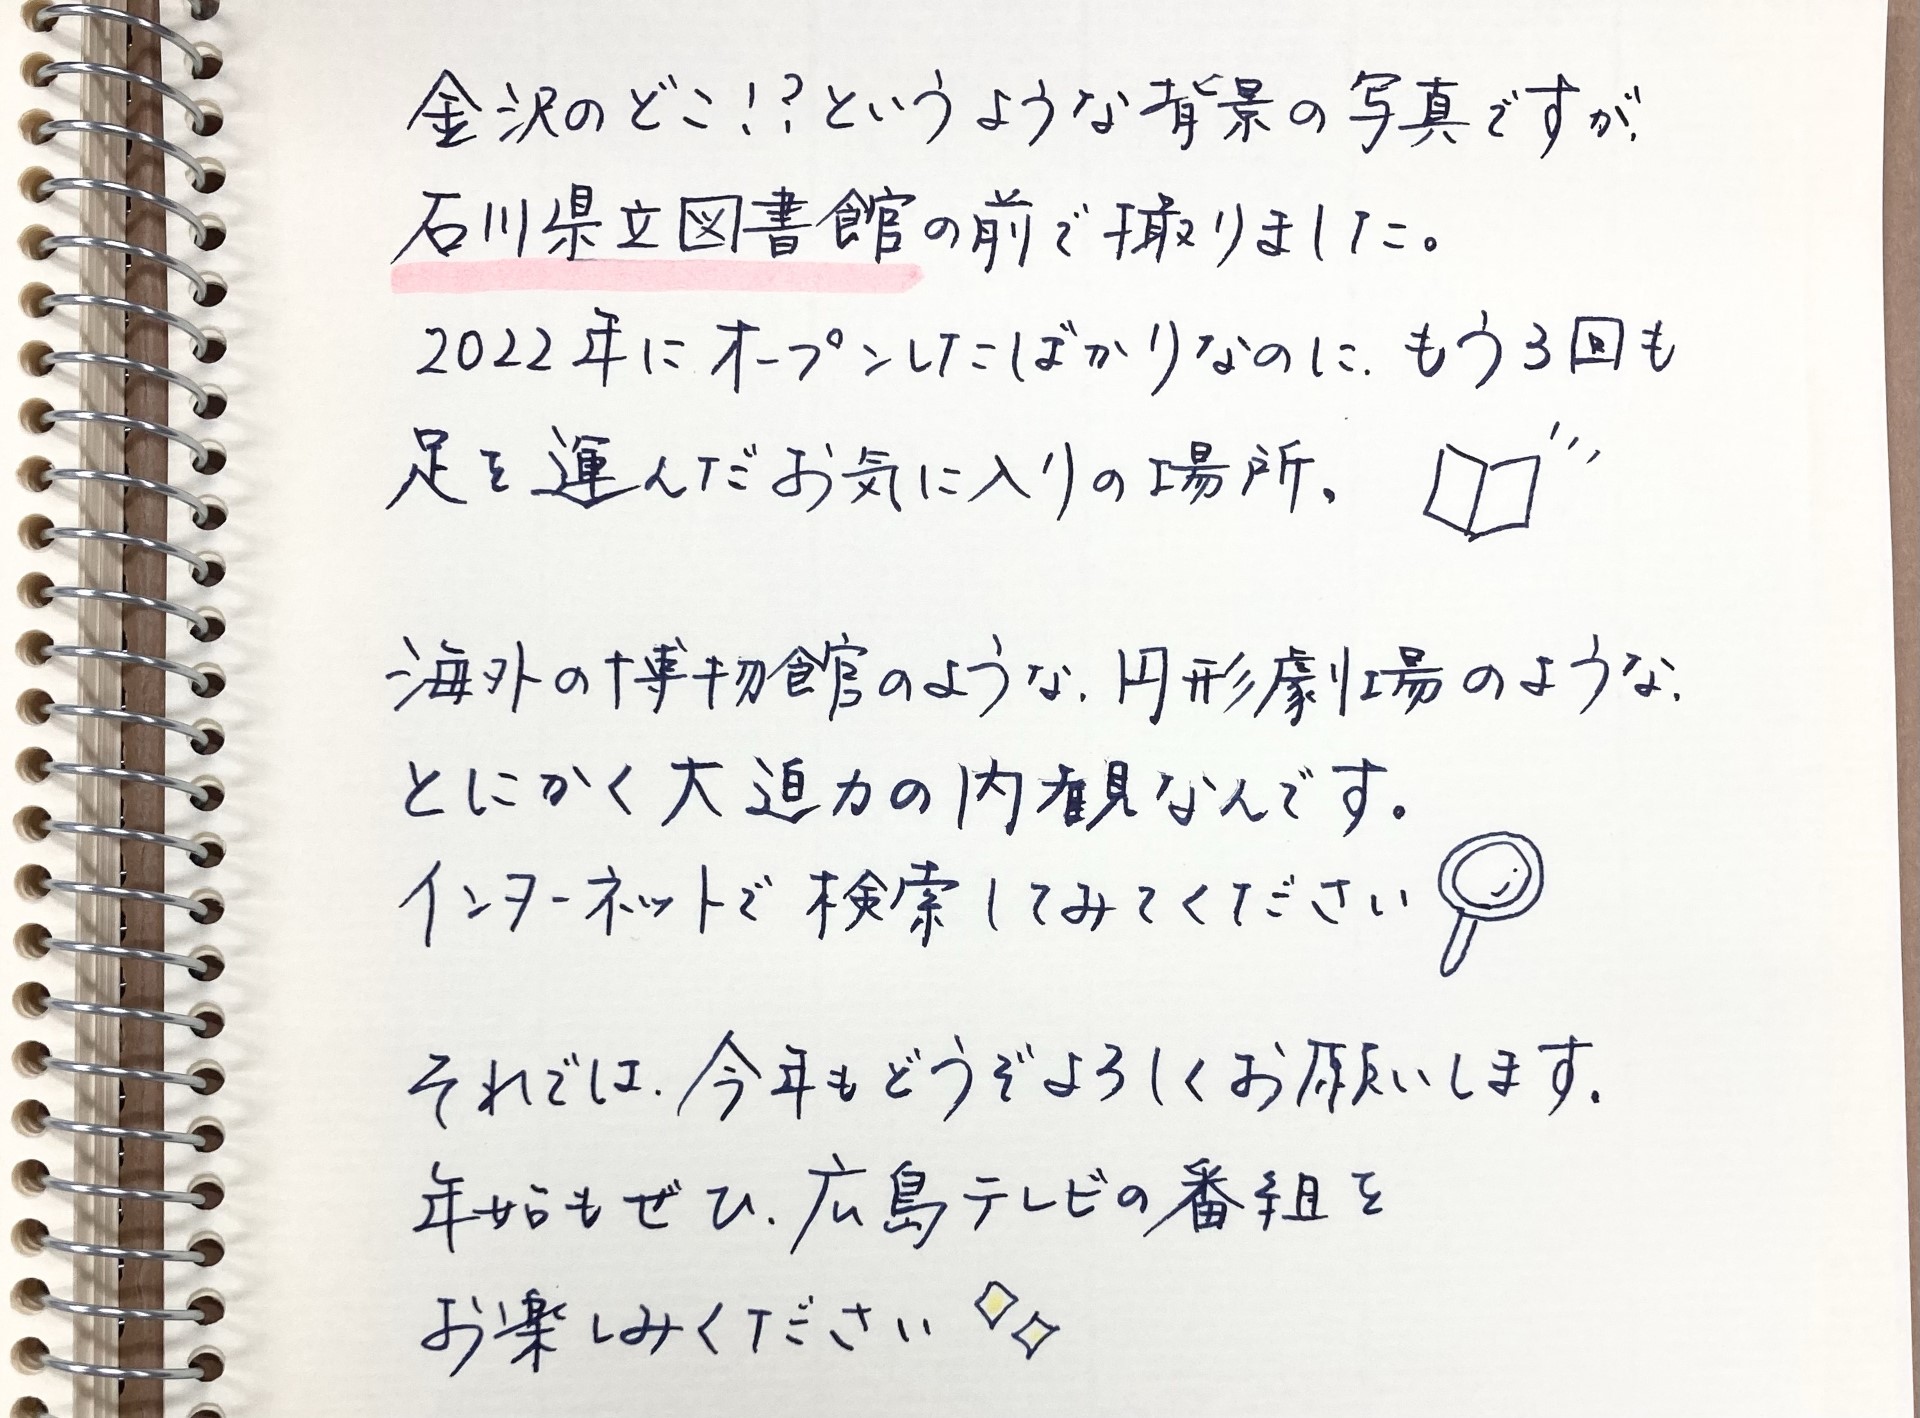 金沢のどこ!?というような背景の写真ですが、
石川県立図書館の前で撮りました。
2022年にオープンしたばかりなのに、もう3回も
足を運んだお気に入りの場所。
海外の博物館のような、円形劇場のような、
とにかく大迫力の内観なんです。
インターネットで検索してみてください
それでは、今年もどうぞよろしくお願いします。
年始もぜひ、広島テレビの番組を
お楽しみください